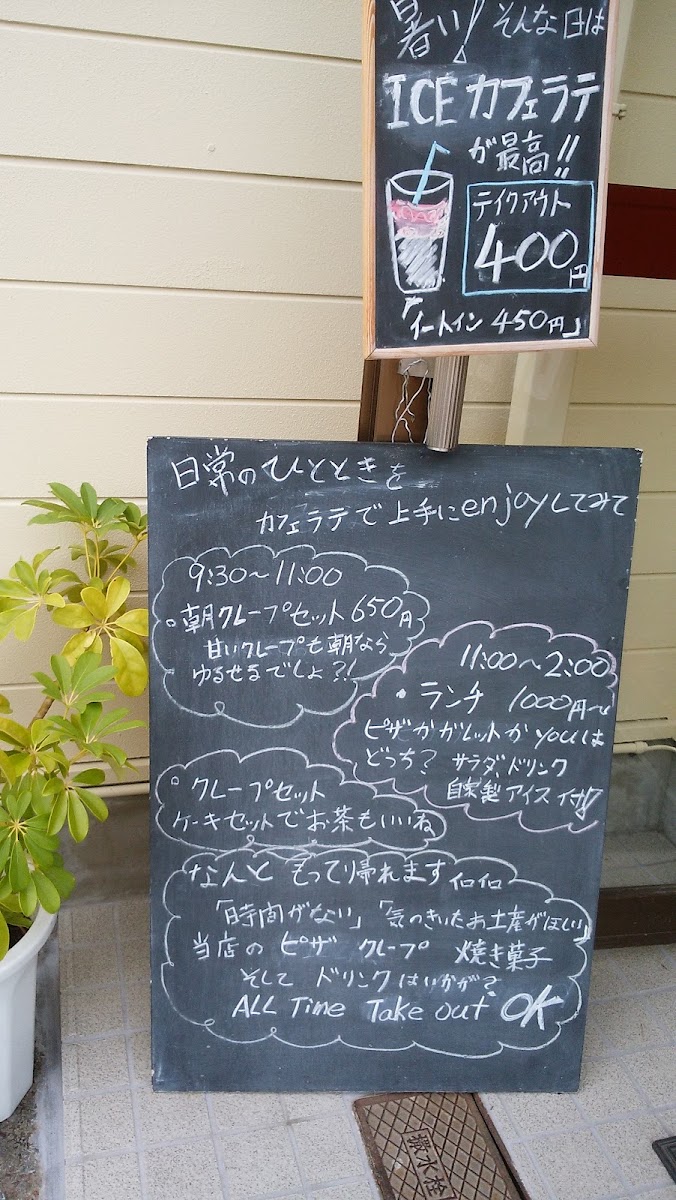 暑い! そんな日は
ICE カフェラテ
が最高!!
テイクアウト
400円
「イートイン 450円」
日常のひとときを
カフェラテで上手にenjoyしてみて
9:30〜11:00
・朝クレープセット 650円
甘いクレープも朝なら
ゆるせるでしょ?!
11:00〜2:00
・ランチ 1000円〜
ピザかガレットか youは
どっち? サラダ、ドリンク
自家製アイス付!
・クレープセット
ケーキセットでお茶もいいね
なんと もって帰れます イロイロ
「時間がない」「気のきいたお土産がほしい」
当店の ピザ クレープ 焼き菓子
そして ドリンクはいかが?
ALL Time Take out OK
散水栓